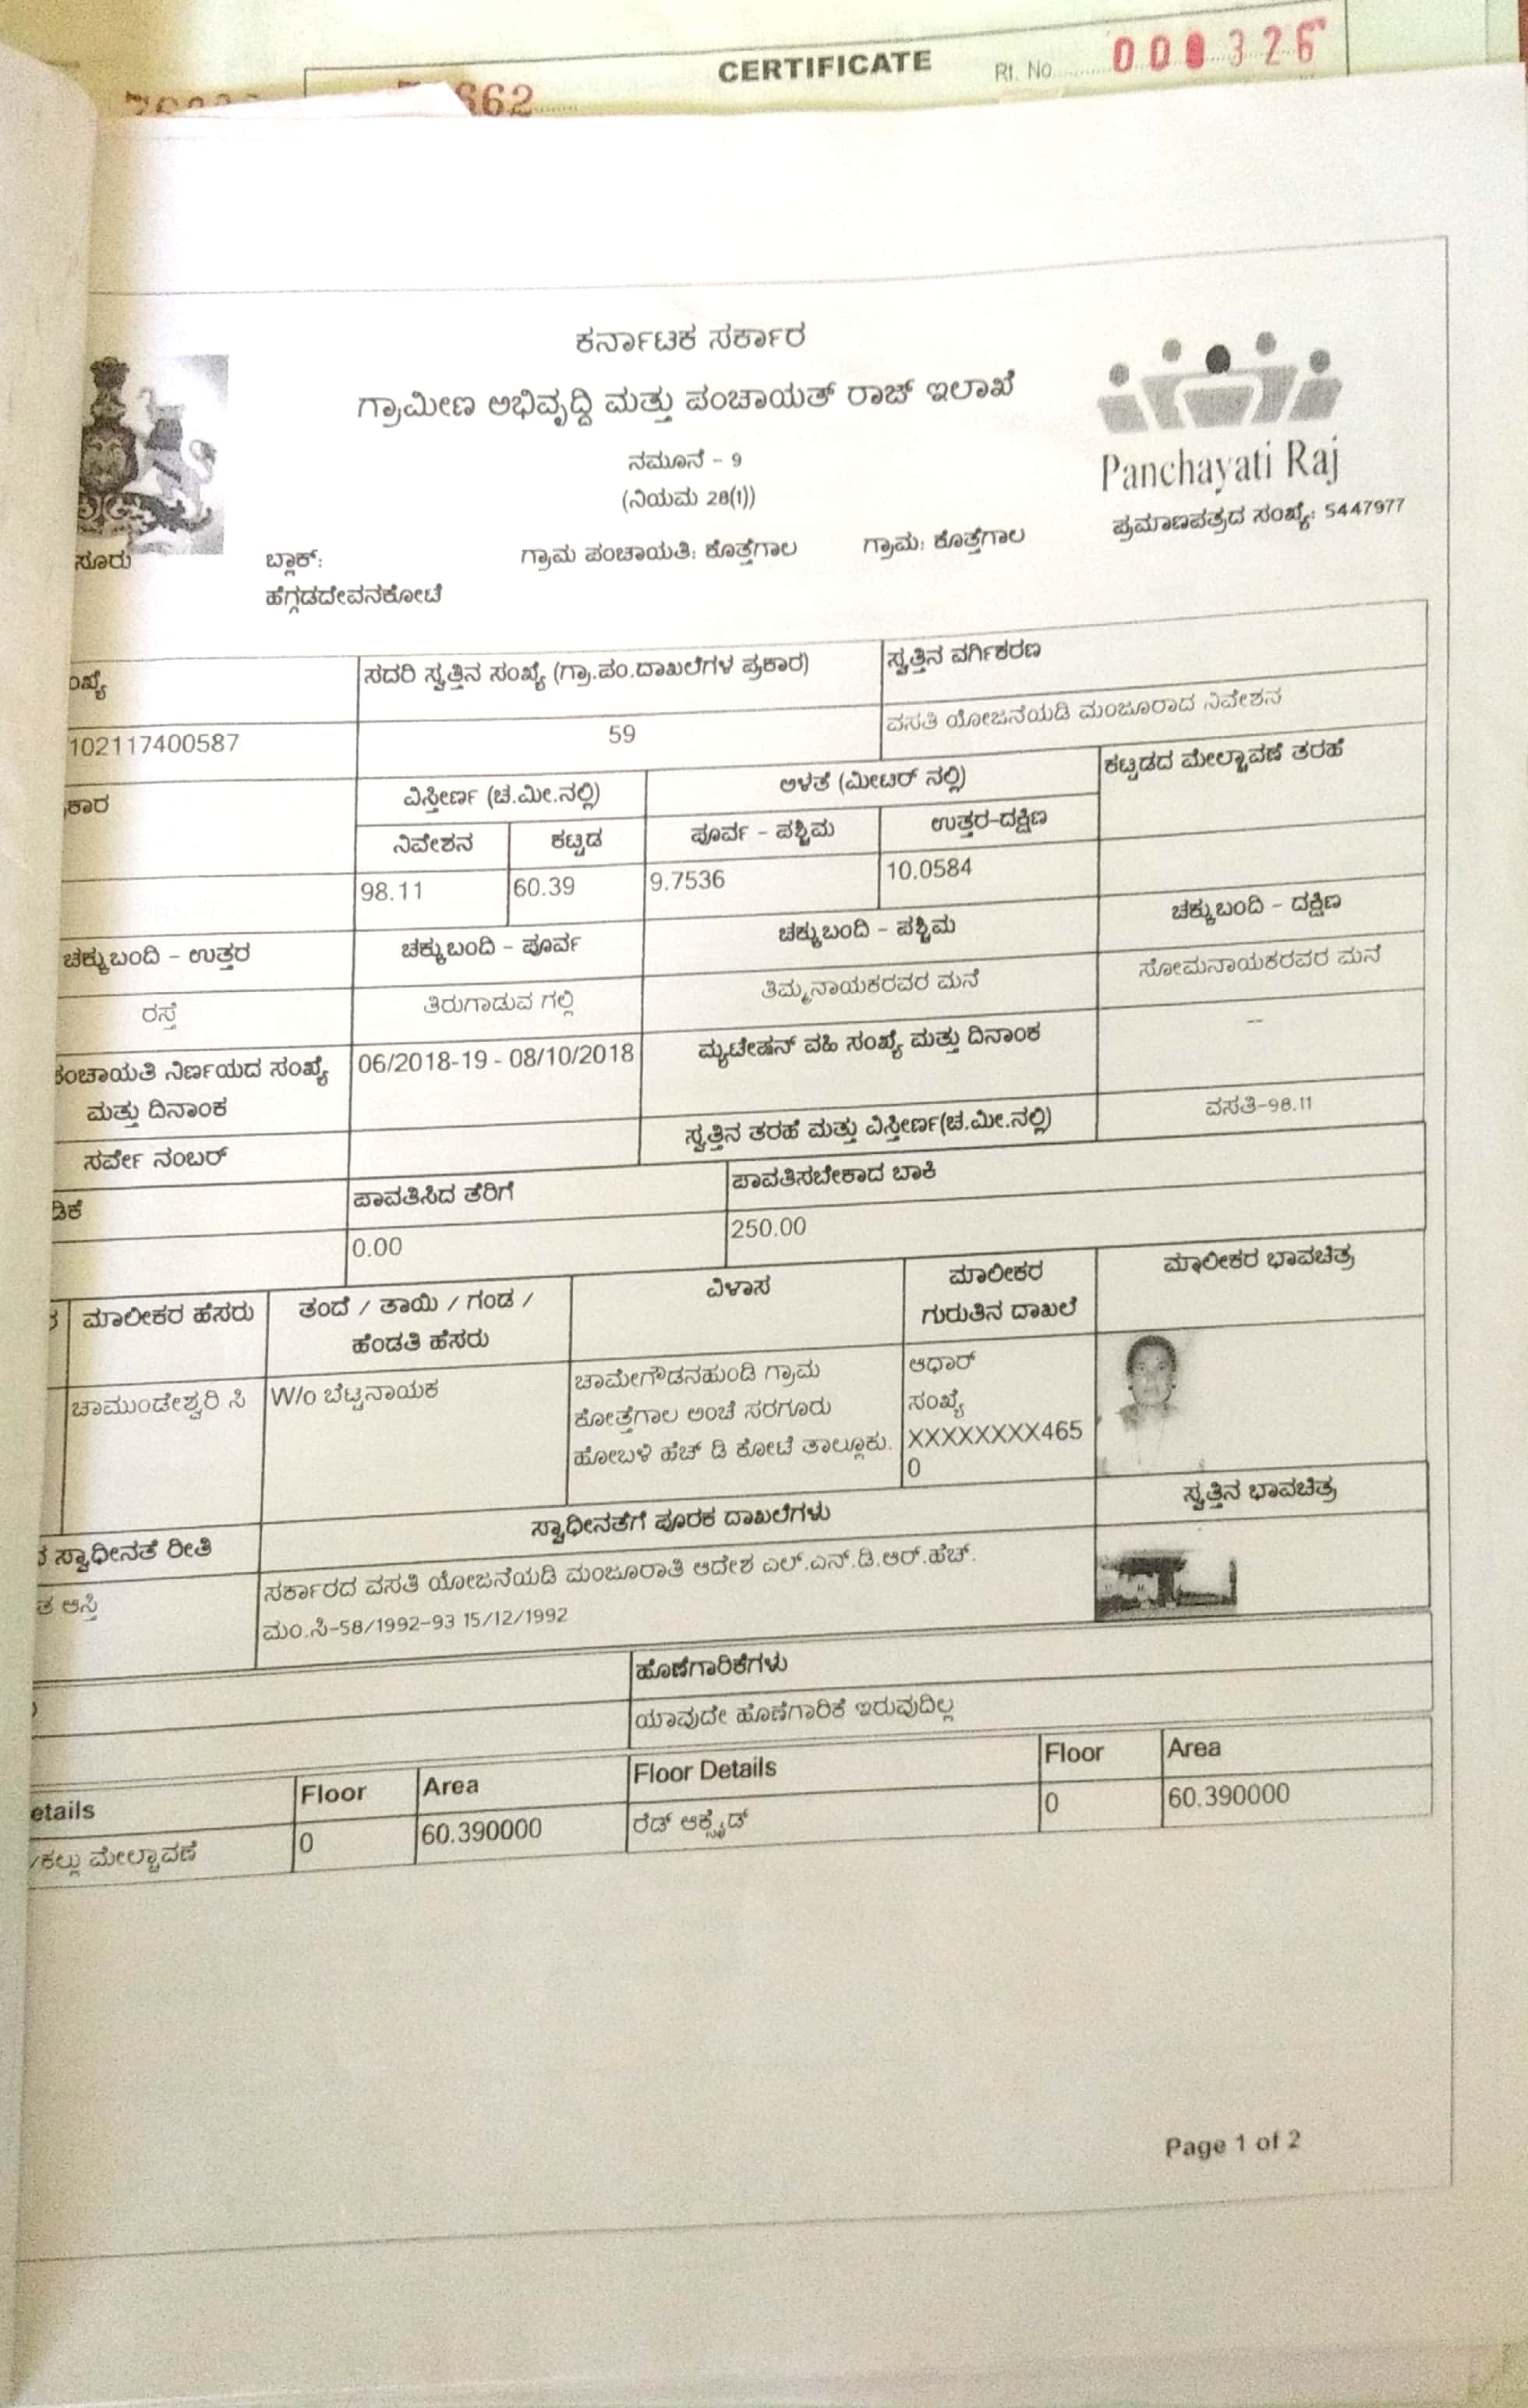 CERTIFICATE
Rt. No
662
ಕರ್ನಾಟಕ ಸರ್ಕಾರ
ಗ್ರಾಮೀಣ ಅಭಿವೃದ್ಧಿ ಮತ್ತು ಪಂಚಾಯತ್ ರಾಜ್ ಇಲಾಖೆ
ನಮೂನೆ - 9
(ನಿಯಮ 28(1))
Panchayati Raj
ಪ್ರಮಾಣಪತ್ರದ ಸಂಖ್ಯೆ: 5447977
ಸೂರು ಬ್ಲಾಕ್: ಗ್ರಾಮ ಪಂಚಾಯತಿ: ಕೊತ್ತೆಗಾಲ ಗ್ರಾಮ: ಕೊತ್ತೆಗಾಲ
ಹೆಗ್ಗಡದೇವನಕೋಟೆ
ಂಖ್ಯೆ ಸದರಿ ಸ್ವತ್ತಿನ ಸಂಖ್ಯೆ (ಗ್ರಾ.ಪಂ.ದಾಖಲೆಗಳ ಪ್ರಕಾರ) ಸ್ವತ್ತಿನ ವರ್ಗೀಕರಣ
102117400587 59 ವಸತಿ ಯೋಜನೆಯಡಿ ಮಂಜೂರಾದ ನಿವೇಶನ
ಕಾರ ವಿಸ್ತೀರ್ಣ (ಚ.ಮೀ.ನಲ್ಲಿ) ಅಳತೆ (ಮೀಟರ್ ನಲ್ಲಿ) ಕಟ್ಟಡದ ಮೇಲ್ಛಾವಣೆ ತರಹೆ
ನಿವೇಶನ ಕಟ್ಟಡ ಪೂರ್ವ - ಪಶ್ಚಿಮ ಉತ್ತರ-ದಕ್ಷಿಣ
98.11 60.39 9.7536 10.0584
ಚಕ್ಕುಬಂದಿ - ಉತ್ತರ ಚಕ್ಕುಬಂದಿ - ಪೂರ್ವ ಚಕ್ಕುಬಂದಿ - ಪಶ್ಚಿಮ ಚಕ್ಕುಬಂದಿ - ದಕ್ಷಿಣ
ರಸ್ತೆ ತಿರುಗಾಡುವ ಗಲ್ಲಿ ತಿಮ್ಮನಾಯಕರವರ ಮನೆ ಸೋಮನಾಯಕರವರ ಮನೆ
ಪಂಚಾಯತಿ ನಿರ್ಣಯದ ಸಂಖ್ಯೆ 06/2018-19 - 08/10/2018 ಮ್ಯುಟೇಷನ್ ವಹಿ ಸಂಖ್ಯೆ ಮತ್ತು ದಿನಾಂಕ --
ಮತ್ತು ದಿನಾಂಕ
ಸರ್ವೇ ನಂಬರ್ ಸ್ವತ್ತಿನ ತರಹೆ ಮತ್ತು ವಿಸ್ತೀರ್ಣ(ಚ.ಮೀ.ನಲ್ಲಿ) ವಸತಿ-98.11
ಡಿಕೆ ಪಾವತಿಸಿದ ತೆರಿಗೆ ಪಾವತಿಸಬೇಕಾದ ಬಾಕಿ
0.00 250.00
ಮಾಲೀಕರ ಹೆಸರು ತಂದೆ / ತಾಯಿ / ಗಂಡ / ವಿಳಾಸ ಮಾಲೀಕರ ಮಾಲೀಕರ ಭಾವಚಿತ್ರ
ಹೆಂಡತಿ ಹೆಸರು ಗುರುತಿನ ದಾಖಲೆ
ಚಾಮುಂಡೇಶ್ವರಿ ಸಿ W/o ಬೆಟ್ಟನಾಯಕ ಚಾಮೇಗೌಡನಹುಂಡಿ ಗ್ರಾಮ ಆಧಾರ್
ಕೋತ್ತೆಗಾಲ ಅಂಚೆ ಸರಗೂರು ಸಂಖ್ಯೆ
ಹೋಬಳಿ ಹೆಚ್ ಡಿ ಕೋಟೆ ತಾಲ್ಲೂಕು. XXXXXXXX465
0
ಸ್ವಾಧೀನತೆ ರೀತಿ ಸ್ವಾಧೀನತೆಗೆ ಪೂರಕ ದಾಖಲೆಗಳು ಸ್ವತ್ತಿನ ಭಾವಚಿತ್ರ
ತ ಆಸ್ತಿ ಸರ್ಕಾರದ ವಸತಿ ಯೋಜನೆಯಡಿ ಮಂಜೂರಾತಿ ಆದೇಶ ಎಲ್.ಎನ್.ಡಿ.ಆರ್.ಹೆಚ್.
ಮಂ.ಸಿ-58/1992-93 15/12/1992
ಹೊಣೆಗಾರಿಕೆಗಳು
ಯಾವುದೇ ಹೊಣೆಗಾರಿಕೆ ಇರುವುದಿಲ್ಲ
etails Floor Area Floor Details Floor Area
/ಕಲ್ಲು ಮೇಲ್ಛಾವಣೆ 0 60.390000 ರೆಡ್ ಆಕ್ಸೈಡ್ 0 60.390000
Page 1 of 2